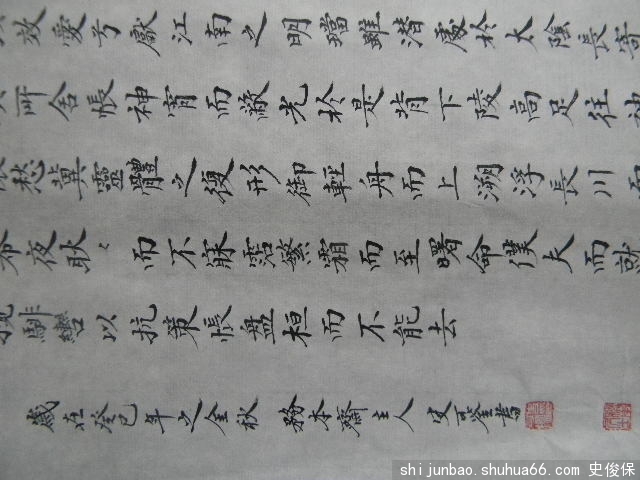 效愛兮獻江南之明璫雖潛處於太陰長寄
所舍悵神宵而蔽光於是背下陵高足往神
愁冀靈體之復形御輕舟而上溯浮長川而
夜耿々而不寐霑繁霜而至曙命僕夫而就
騑轡以抗策悵盤桓而不能去
歲在癸巳年之金秋 務本齋主人 史書
shijunbao.shuhua66.com 史俊保